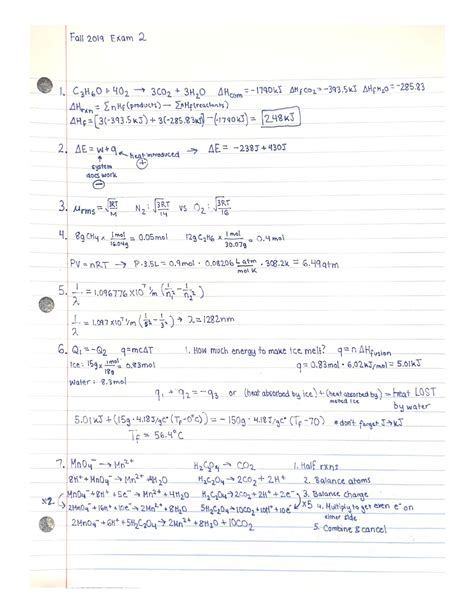 Fall 2019 Exam 2
1. C₃H₆O + 4O₂ → 3CO₂ + 3H₂O ΔHcom = -1790kJ ΔHfCO₂ = -393.5kJ ΔHfH₂O = -285.83
ΔHrxn = ΣnHf (products) - ΣnHf (reactants)
ΔHf = [3(-393.5kJ) + 3(-285.83kJ)] - (-1790kJ) = 248kJ
2. ΔE = w + q ← heat introduced → ΔE = -238J + 430J
system
does work
-
3. μrms = √3RT/M N₂: √3RT/14 vs O₂: √3RT/16
4. 8g CH₄ × 1mol/16.04g = 0.05mol 12g C₂H₆ × 1mol/30.07g = 0.4mol
PV = nRT → P·3.5L = 0.9mol · 0.08206 L atm/mol K · 308.2K = 6.49atm
5. 1/λ = 1.096776 ×10⁷ 1/m (1/n₂² - 1/n₁²)
1/λ = 1.097 ×10⁷ 1/m (1/5² - 1/3²) → λ = 1282nm
6. Q₁ = -Q₂ q = mcΔT 1. How much energy to make ice melt? q = nΔHfusion
Ice: 15g × 1mol/18g = 0.83mol q = 0.83mol · 6.02kJ/mol = 5.01kJ
Water: 8.3mol
q₁ + q₂ = -q₃ or (heat absorbed by ice) + (heat absorbed by) = heat LOST
melted ice by water
5.01kJ + (15g · 4.18J/gC° (Tf - 0C°)) = -150g · 4.18J/gC° (Tf - 70) *don't forget J → kJ
Tf = 56.4°C
7. MnO₄⁻ → Mn²⁺ H₂C₂O₄ → CO₂ 1. Half rxns
8H⁺ + MnO₄⁻ → Mn²⁺ + 4H₂O H₂C₂O₄ → 2CO₂ + 2H⁺ 2. Balance atoms
MnO₄⁻ + 8H⁺ + 5e⁻ → Mn²⁺ + 4H₂O H₂C₂O₄ → 2CO₂ + 2H⁺ + 2e⁻ 3. Balance charge
×2 2MnO₄⁻ + 16H⁺ + 10e⁻ → 2Mn²⁺ + 8H₂O 5H₂C₂O₄ → 10CO₂ + 10H⁺ + 10e⁻ ×5 4. Multiply to get even e⁻ on
either side
2MnO₄⁻ + 6H⁺ + 5H₂C₂O₄ → 2Mn²⁺ + 8H₂O + 10CO₂ 5. Combine & cancel